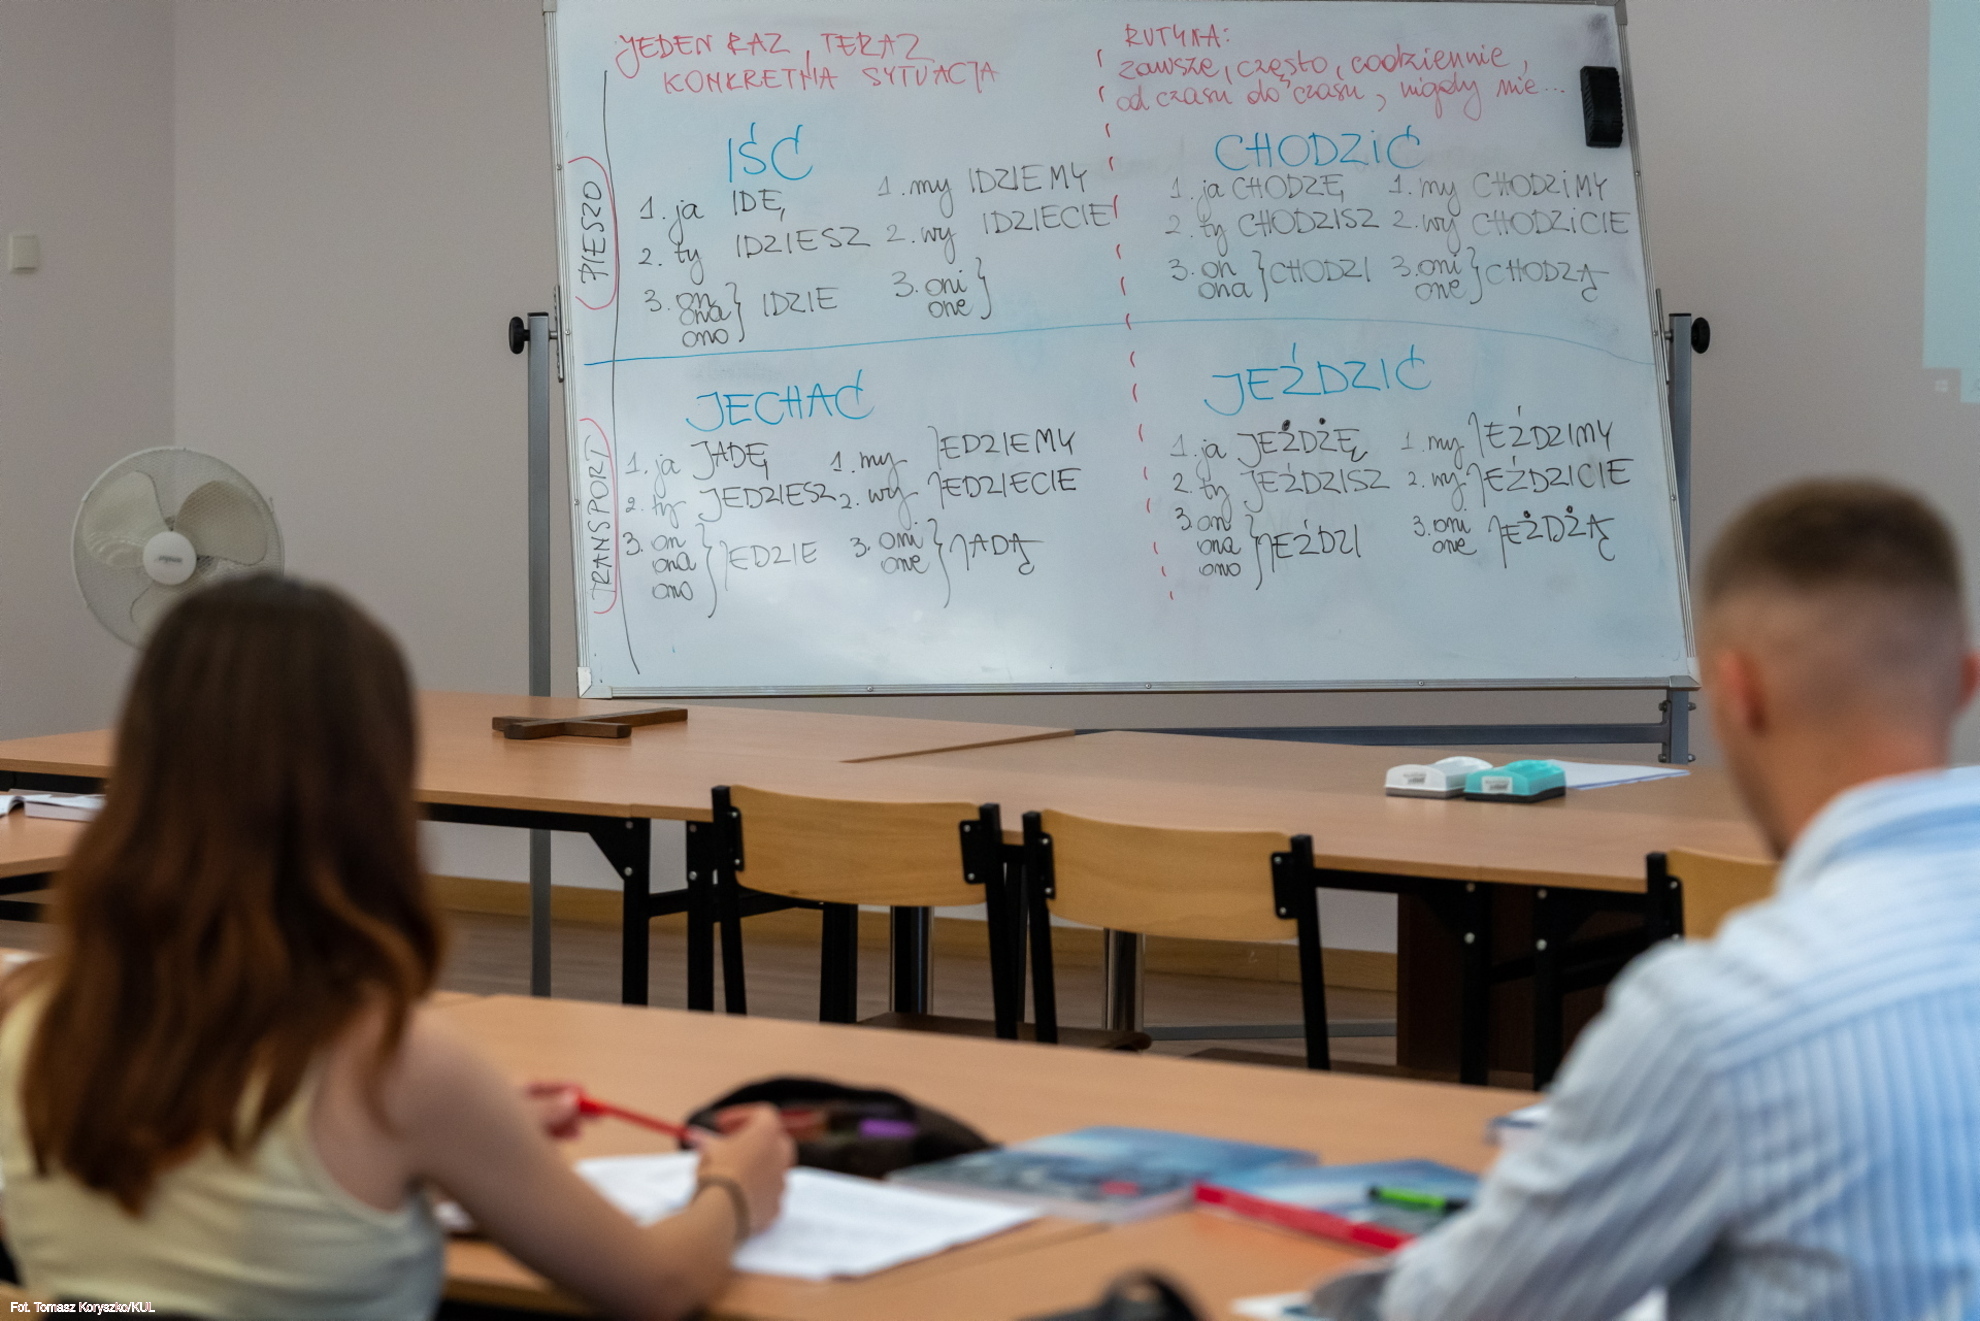 JEDEN RAZ, TERAZ
KONKRETNA SYTUACJA
RUTYNA:
zawsze, często, codziennie,
od czasu do czasu, nigdy nie...
PIESZO
IŚĆ
1. ja IDĘ
2. ty IDZIESZ
3. on
ona } IDZIE
ono
1. my IDZIEMY
2. wy IDZIECIE
3. oni }
one
CHODZIĆ
1. ja CHODZĘ
2. ty CHODZISZ
3. on } CHODZI
ona
1. my CHODZIMY
2. wy CHODZICIE
3. oni } CHODZĄ
one
TRANSPORT
JECHAĆ
1. ja JADĘ
2. ty JEDZIESZ
3. on
ona } JEDZIE
ono
1. my JEDZIEMY
2. wy JEDZIECIE
3. oni } JADĄ
one
JEŹDZIĆ
1. ja JEŻDŻĘ
2. ty JEŹDZISZ
3. on
ona } JEŹDZI
ono
1. my JEŹDZIMY
2. wy JEŹDZICIE
3. oni JEŻDŻĄ
one
Fot. Tomasz Koryszko/KUL